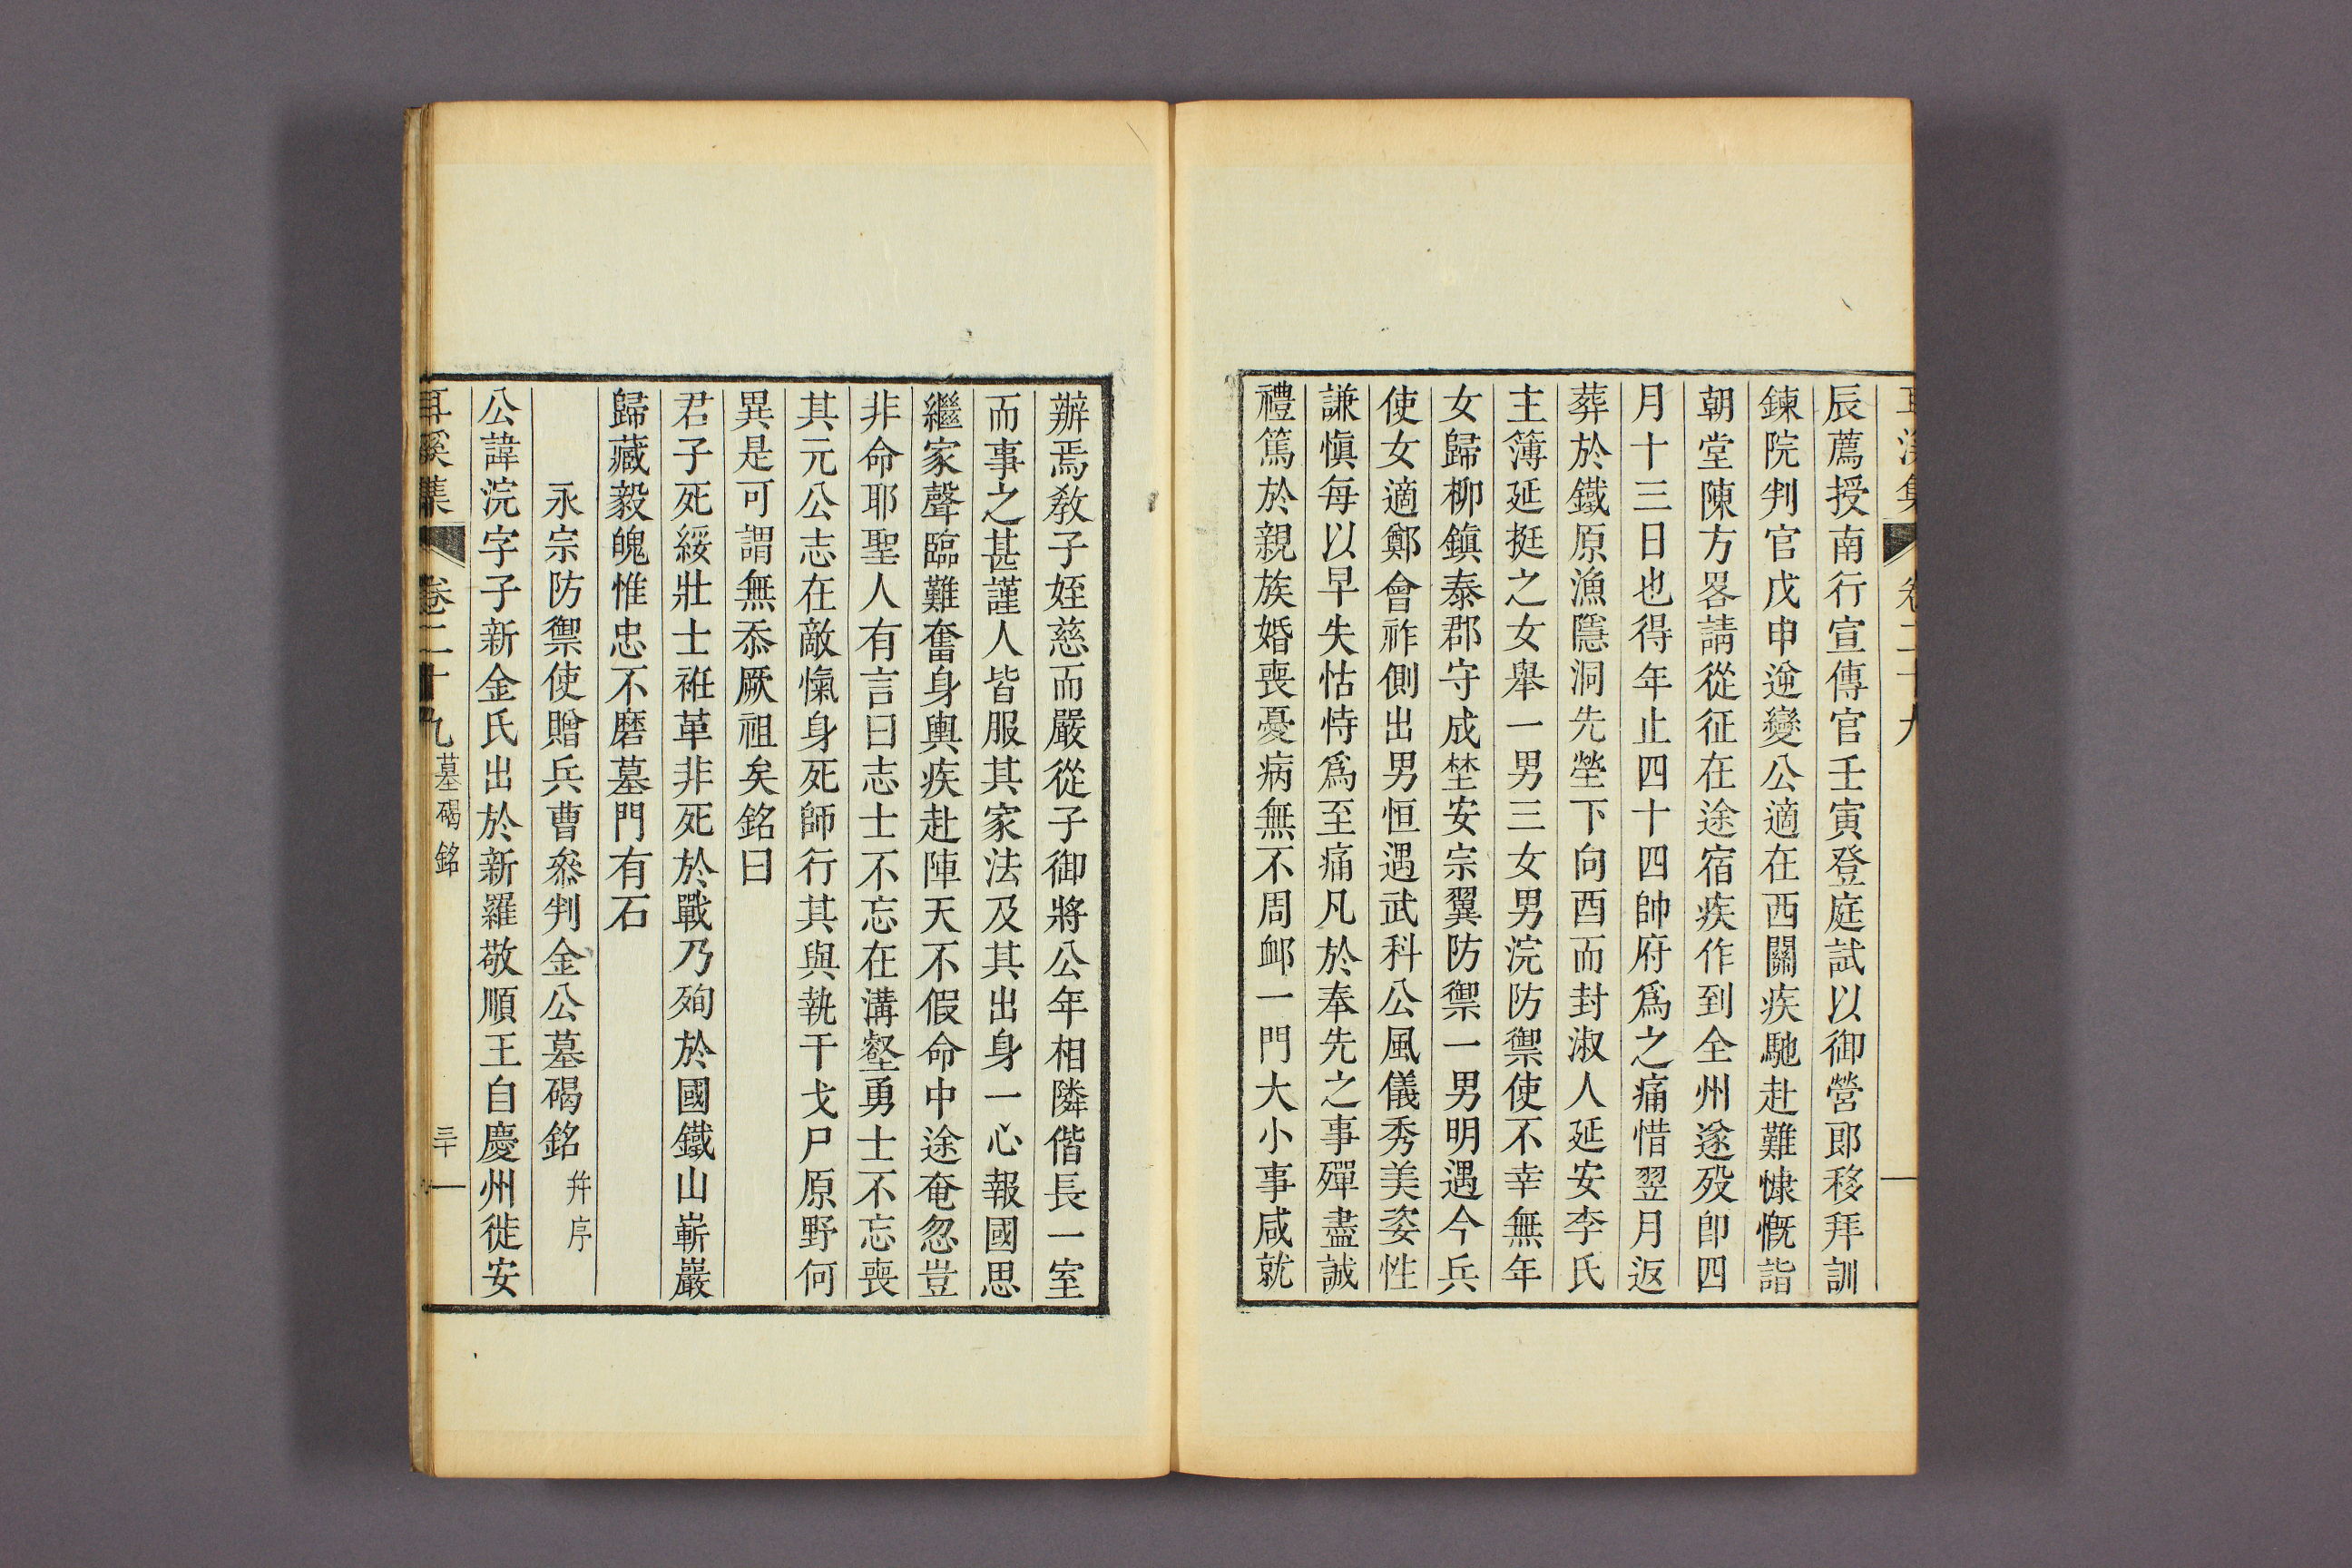 耳溪集 卷二十九
辰薦授南行宣傳官壬寅登庭試以御營郎移拜訓
鍊院判官戊申逆變公適在西關疾馳赴難慷慨詣
朝堂陳方畧請從征在途宿疾作到全州遂歿卽四
月十三日也得年止四十四帥府爲之痛惜翌月返
葬於鐵原漁隱洞先塋下向酉而封淑人延安李氏
主簿延挺之女舉一男三女男浣防禦使不幸無年
女歸柳鎭泰郡守成埜安宗翼防禦一男明遇今兵
使女適鄭會祚側出男恒遇武科公風儀秀美姿性
謙愼每以早失怙恃爲至痛凡於奉先之事殫盡誠
禮篤於親族婚喪憂病無不周衈一門大小事咸就
辦焉敎子姪慈而嚴從子御將公年相隣偕長一室
而事之甚謹人皆服其家法及其出身一心報國思
繼家聲臨難奮身輿疾赴陣天不假命中途奄忽豈
非命耶聖人有言曰志士不忘在溝壑勇士不忘喪
其元公志在敵愾身死師行其與執干戈尸原野何
異是可謂無忝厥祖矣銘曰
君子死綏壯士袵革非死於戰乃殉於國鐵山嶄巖
歸藏毅魄惟忠不磨墓門有石
永宗防禦使贈兵曹叅判金公墓碣銘 幷序
公諱浣字子新金氏出於新羅敬順王自慶州徙安
耳溪集 卷二十九 墓碣銘 三十